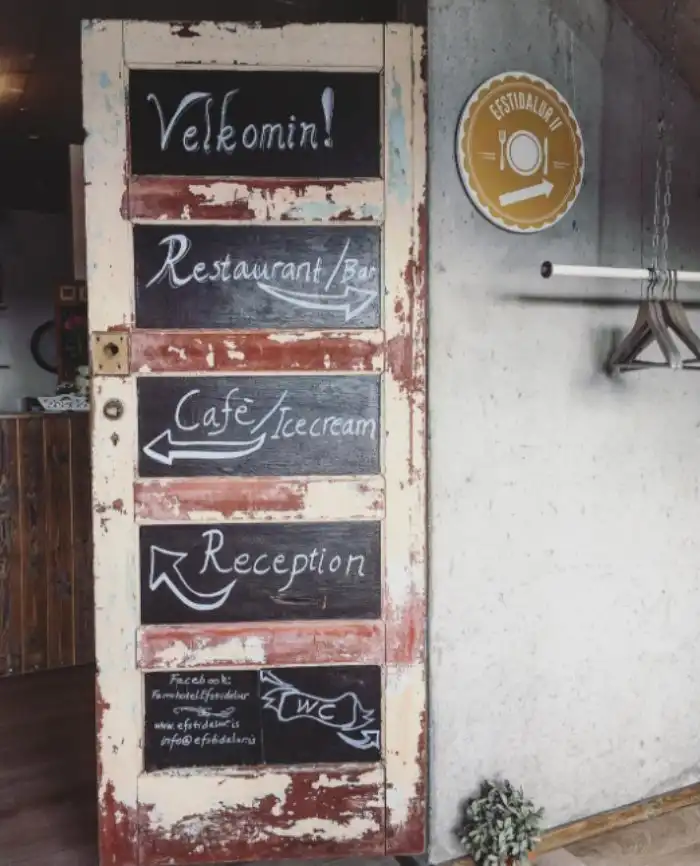 Velkomin!
EFSTIDALUR II
Restaurant/Bar
Cafè/Icecream
Reception
Facebook:
Farmhotel.Efstidalur
www.efstidalur.is
info@efstidalur.is
WC